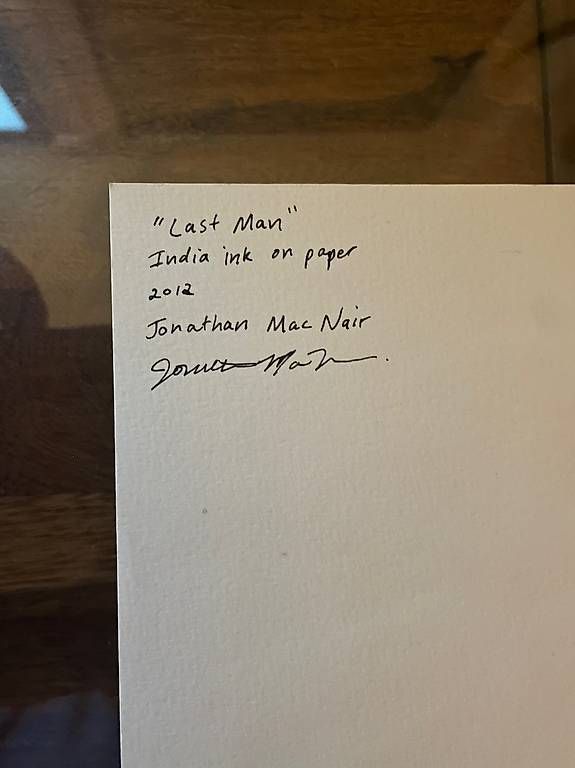 "Last Man"
India ink on paper
2012
Jonathan Mac Nair